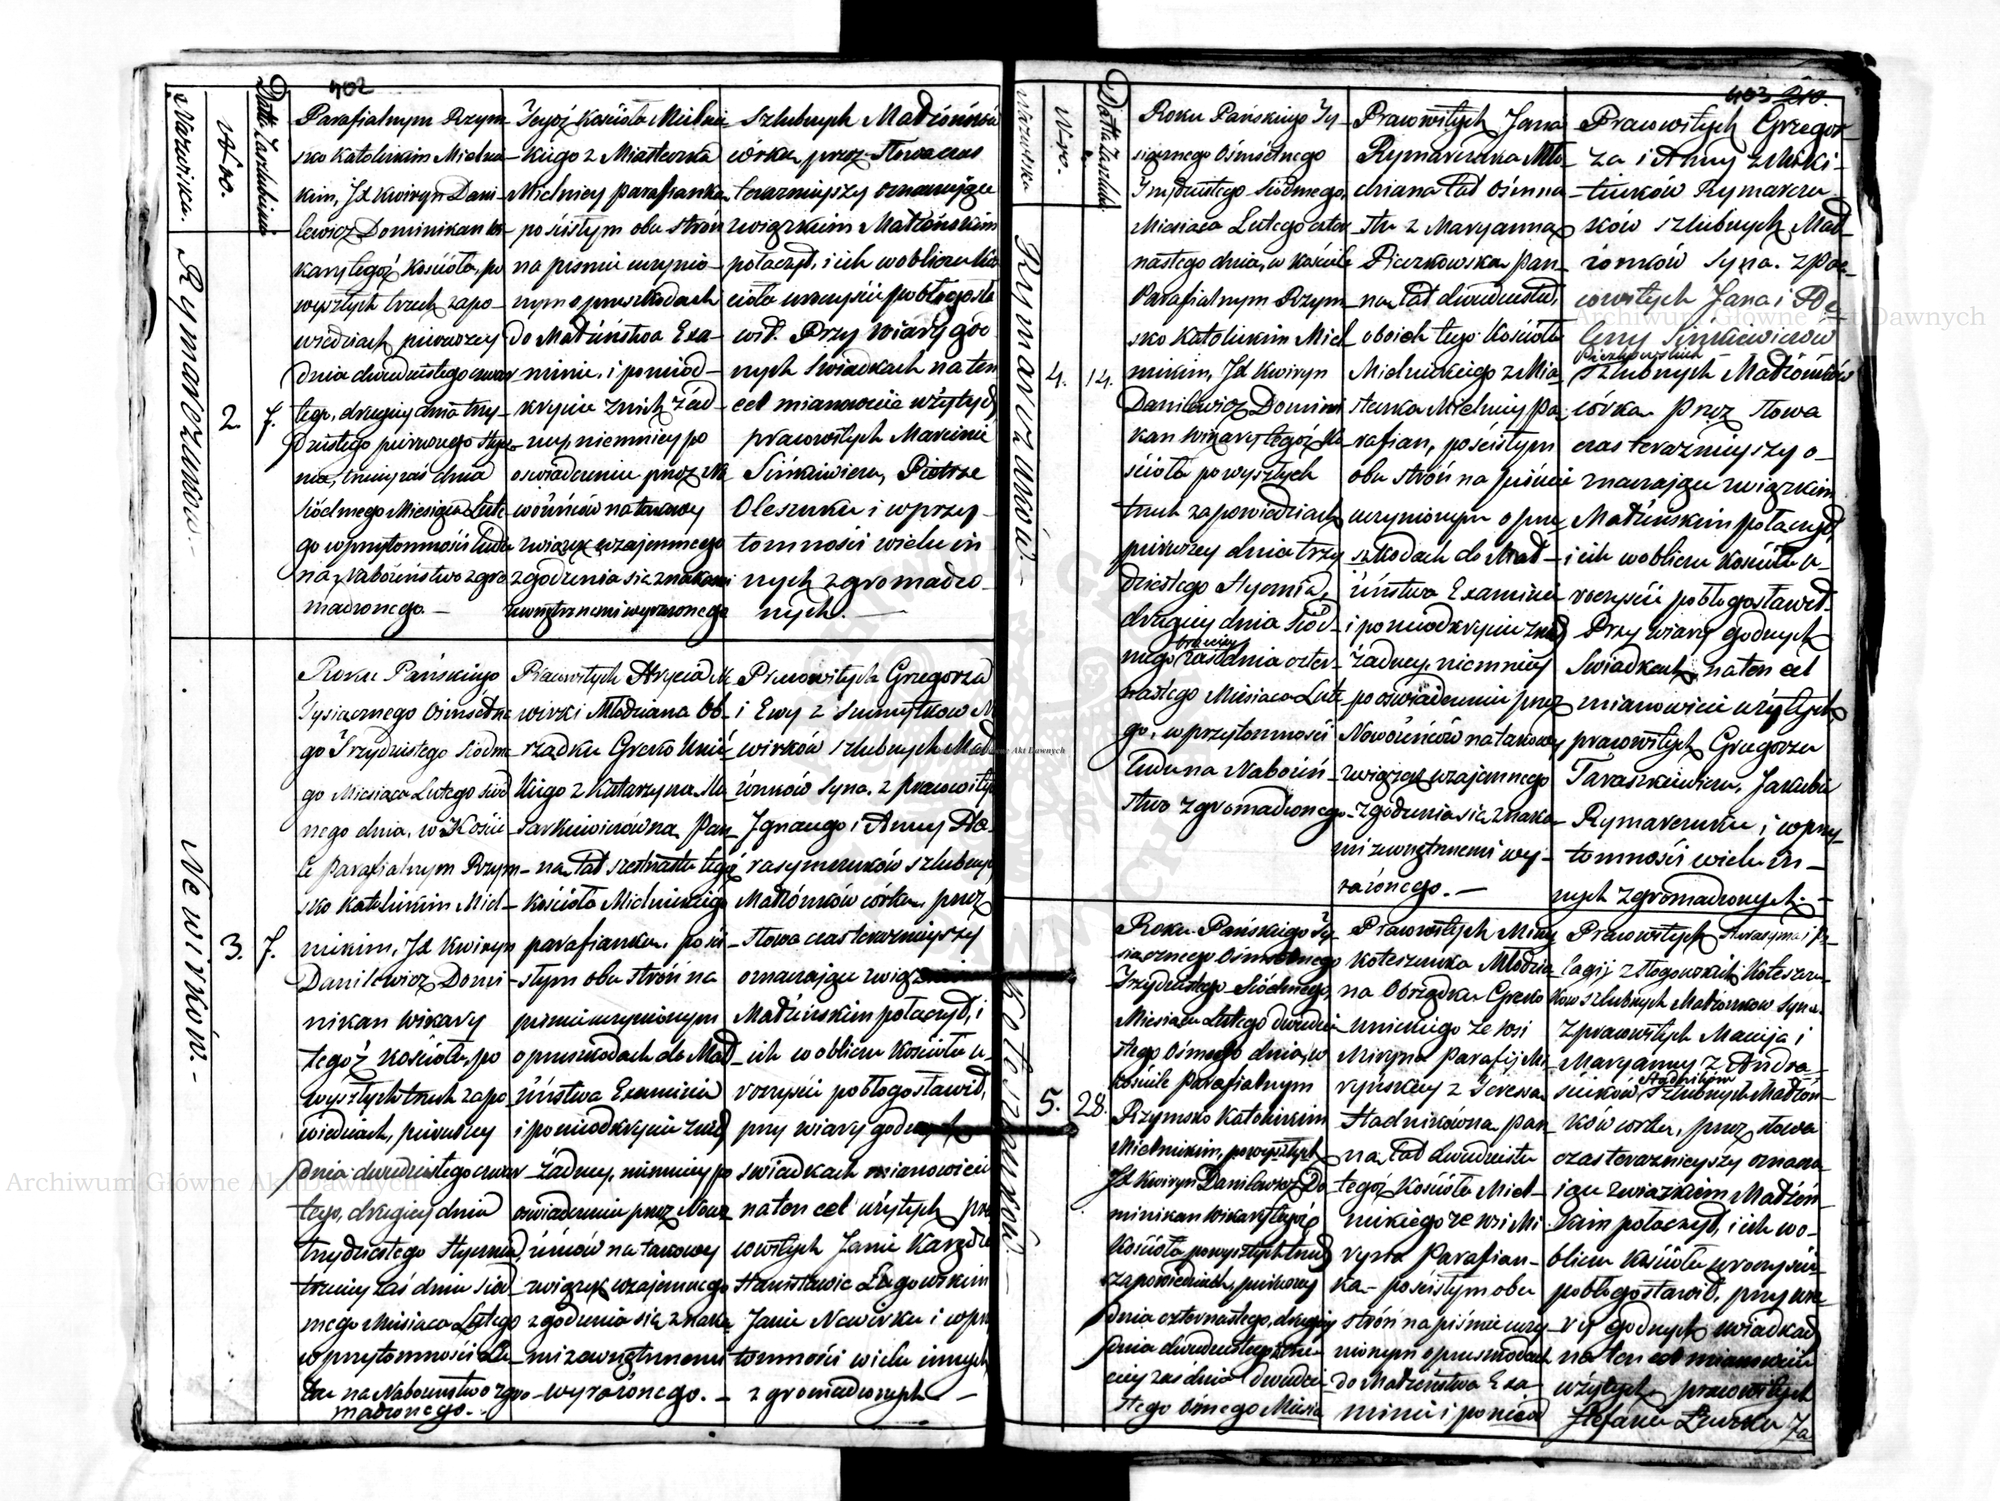 402
Nazwiska.
N-ro.
Datta Zaślubienia
Rymarczuków.
2.
7.
Parafialnym Rzym-
sko Katolickim Mielni-
kim, Jx Kwiryn Dani-
lewicz Dominikan Wi-
kary tegoż Kościoła, po
wyszłych trzech zapo-
wiedziach pierwszey
dnia dwudziestego czwar
tego, drugiey dnia trzy-
dziestego pierwszego Stycz-
nia, trzeciey zaś dnia
siódmego Miesiąca Lute-
go w przytomności Ludu
na Nabożeństwo zgro
madzonego. —
Tegoż Kościoła Mielnic-
kiego z Miasteczka
Mielnicy parafianka,
po ścisłym obu strón
na piśmie uczynio-
nym o przeszkodach
do Małżeństwa Exa-
minie, i ponieod-
kryciu z nich żad-
ney, niemniey po
oswiadczeniu przez No-
wożeńców na takowy
związek wzajemnego
zgodzenia się znakami
zewnętrznemi wyrażonego
Szlubnych Małżonków
córką, przez Słowa czas
teraznieyszy oznaczające
związkiem Małżeńskim
połączył, i ich w obliczu Koś
cioła uroczyście pobłogosła
wił. Przy wiary god-
nych Swiadkach na ten
cel mianowicie użytych
pracowitych Marcinie
Sinkiewiczu, Piotrze
Oleszuku i w przy-
tomności wielu in-
nych zgromadzo-
nych. —
Newirków. -
3.
7.
Roku Pańskiego
Tysiącznego Ośmsetne
go Trzydziestego siódme
go Miesiąca Lutego siód
mego dnia, w Koście
le Parafialnym Rzym-
sko Katolickim Miel-
nickim, Jx Kwiryn
Danilewicz Domi-
nikan Wikary
tegoż Kościoła, po
wyszłych trzech zapo
wiedziach, pierwszey
dnia dwudziestego czwar
tego, drugiey dnia
trzydziestego Stycznia,
trzeciey zaś dnia siód
mego Miesiąca Lutego
w przytomności Lu-
du na Nabożeństwo zgro-
madzonego. -
Pracowitych Hrycia Ne
wirki Młodziana Ob-
rządku Greko Unic-
kiego z Katarzyną Ma
karkiewiczówną Pan-
ną Lat szesnastu tegoż
Kościoła Mielnickiego
parafianką, po ści-
słym obu strón na
piśmie uczynionym
o przeszkodach do Mał-
żeństwa Examinie
i ponieodkryciu z nich
żadney, niemniey po
oswiadczeniu przez Nowo-
żeńców na takowy
związek wzajemnego
zgodzenia się znaka-
mi zewnętrznemi
wyrażonego. -
Pracowitych Grzegorza
i Ewy z Ne
wirków szlubnych Mał
żonków Syna, z pracowitych
Ignacego i Anny Ha-
rasymczuków szlubnych
Małżonków córką, przez
Słowa czas teraznieyszy
oznaczające związkiem
Małżeńskim połączył, i
ich w obliczu Kościoła u-
roczyście pobłogosławił,
przy wiary godnych
swiadkach mianowicie
na ten cel użytych pra
cowitych Janie
Stanisławie Ługowskim
Janie Newirku i w przy
tomności wielu innych
zgromadzonych —
403 210.
Nazwiska
N-ro.
Datta Zaślub.
Rymarczuków. -
4.
14.
Roku Pańskiego Ty-
siącznego Ośmsetnego
Trzydziestego Siódmego,
Miesiąca Lutego czter-
nastego dnia, w Kościele
Parafialnym Rzym-
sko Katolickim Miel
nickim, Jx Kwiryn
Danilewicz Domini
kan Wikary tegoż Ko
ścioła po wyszłych
trzech zapowiedziach
pierwszey dnia trzy
dziestego Stycznia,
drugiey dnia Siód-
mego trzeciey zaś dnia czter-
nastego Miesiąca Lute
go, w przytomności
Ludu na Nabożeń-
stwo zgromadzonego
Pracowitych Jana
Rymarczuka Mło-
dziana Lat ośmna
stu z Maryanną
Pieczkowską Pan-
ną Lat dwudziestu,
oboich tego Kościoła
Mielnickiego z Mia-
steczka Mielnicy Pa-
rafian, po ścisłym
obu strón na piśmie
uczynionym o prze
szkodach do Mał-
żeństwa Examinie
i ponieodkryciu z nich
żadney, niemniey
po oswiadczeniu przez
Nowożeńców na takowy
związek wzajemnego
zgodzenia się znaka-
mi zewnętrznemi wy-
rażonego. —
Pracowitych Grzegor-
za i Anny z
Rymarczu-
ków szlubnych Mał-
żonków Syna. z Pra-
cowitych Jana i He-
leny Sinkiewiczów
Pieczkowskich
szlubnych Małżonków
córką przez Słowa
czas teraznieyszy o-
znaczające związkiem
Małżeńskim połączył,
i ich w obliczu Kościoła u-
roczyście pobłogosławił.
Przy wiary godnych
Swiadkach na ten cel
mianowicie użytych
pracowitych Grzegorzu
Taraszkiewiczu, Jakubie
Rymarczuku i w przy-
tomności wielu in-
nych zgromadzonych. -
Koteszuków. —
5.
28.
Roku Pańskiego Ty-
siącznego Ośmsetnego
Trzydziestego Siódmego,
Miesiąca Lutego dwudzie
stego Ośmego dnia, w
Kościele Parafialnym
Rzymsko Katolickim
Mielnickim, po wyszłych
Jx Kwiryn Danilewicz Do
minikan Wikary tegoż
Kościoła po wyszłych trzech
zapowiedziach, pierwszey
dnia czternastego, drugiey
dnia dwudziestego, trze
ciey zaś dnia dwudzie
stego ósmego Miesią
Pracowitych
Koteszuka Młodzia
na Obrządku Greko
Unickiego ze wsi
Miryna Parafij Mi-
ryńskiey z Teressą
Stadnikówną Pan-
ną Lat dwudziestu
tegoż Kościoła Miel-
nickiego ze wsi Mi
ryna Parafian-
ką - po ścisłym obu
strón na piśmie uczy
nionym o przeszkodach
do Małżeństwa Exa-
minie i ponieod
Pracowitych Harasyma i Pe-
lagij z Koteszu-
ków szlubnych Małżonków Syna.
z pracowitych Macieja i
Maryanny z Andra-
sików Stadników szlubnych Małżon-
ków córką, przez słowa
czas teraznieyszy oznacza
jące związkiem Małżeń-
skim połączył, i ich w o-
bliczu Kościoła uroczyście
pobłogosławił, przy wia-
ry godnych swiadkach
na ten cel mianowicie
użytych pracowitych
Stefanie Ja
Archiwum Główne Akt Dawnych
Archiwum Główne Akt Dawnych